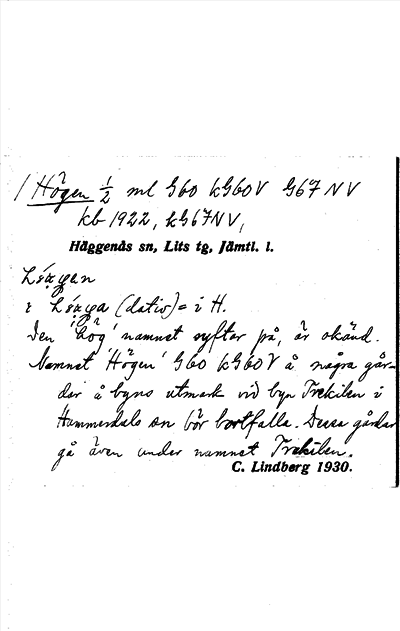 1 Högen ½ ml G60 kG60V G67NV
kb 1922, kG67NV,
Häggenås sn, Lits tg, Jämtl. l.
(dativ) = i H.
Den 'hög' namnet syftar på, är okänd.
Namnet 'Högen' G60 kG60V å några går-
dar å byns utmark vid byn Trekilen i
Hammerdals sn bör bortfalla. Dessa gårdar
gå även under namnet Trekilen.
C. Lindberg 1930.